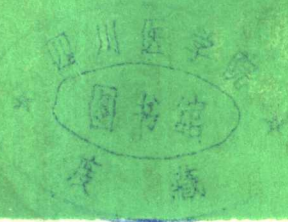 四川医学院
图书馆
度藏